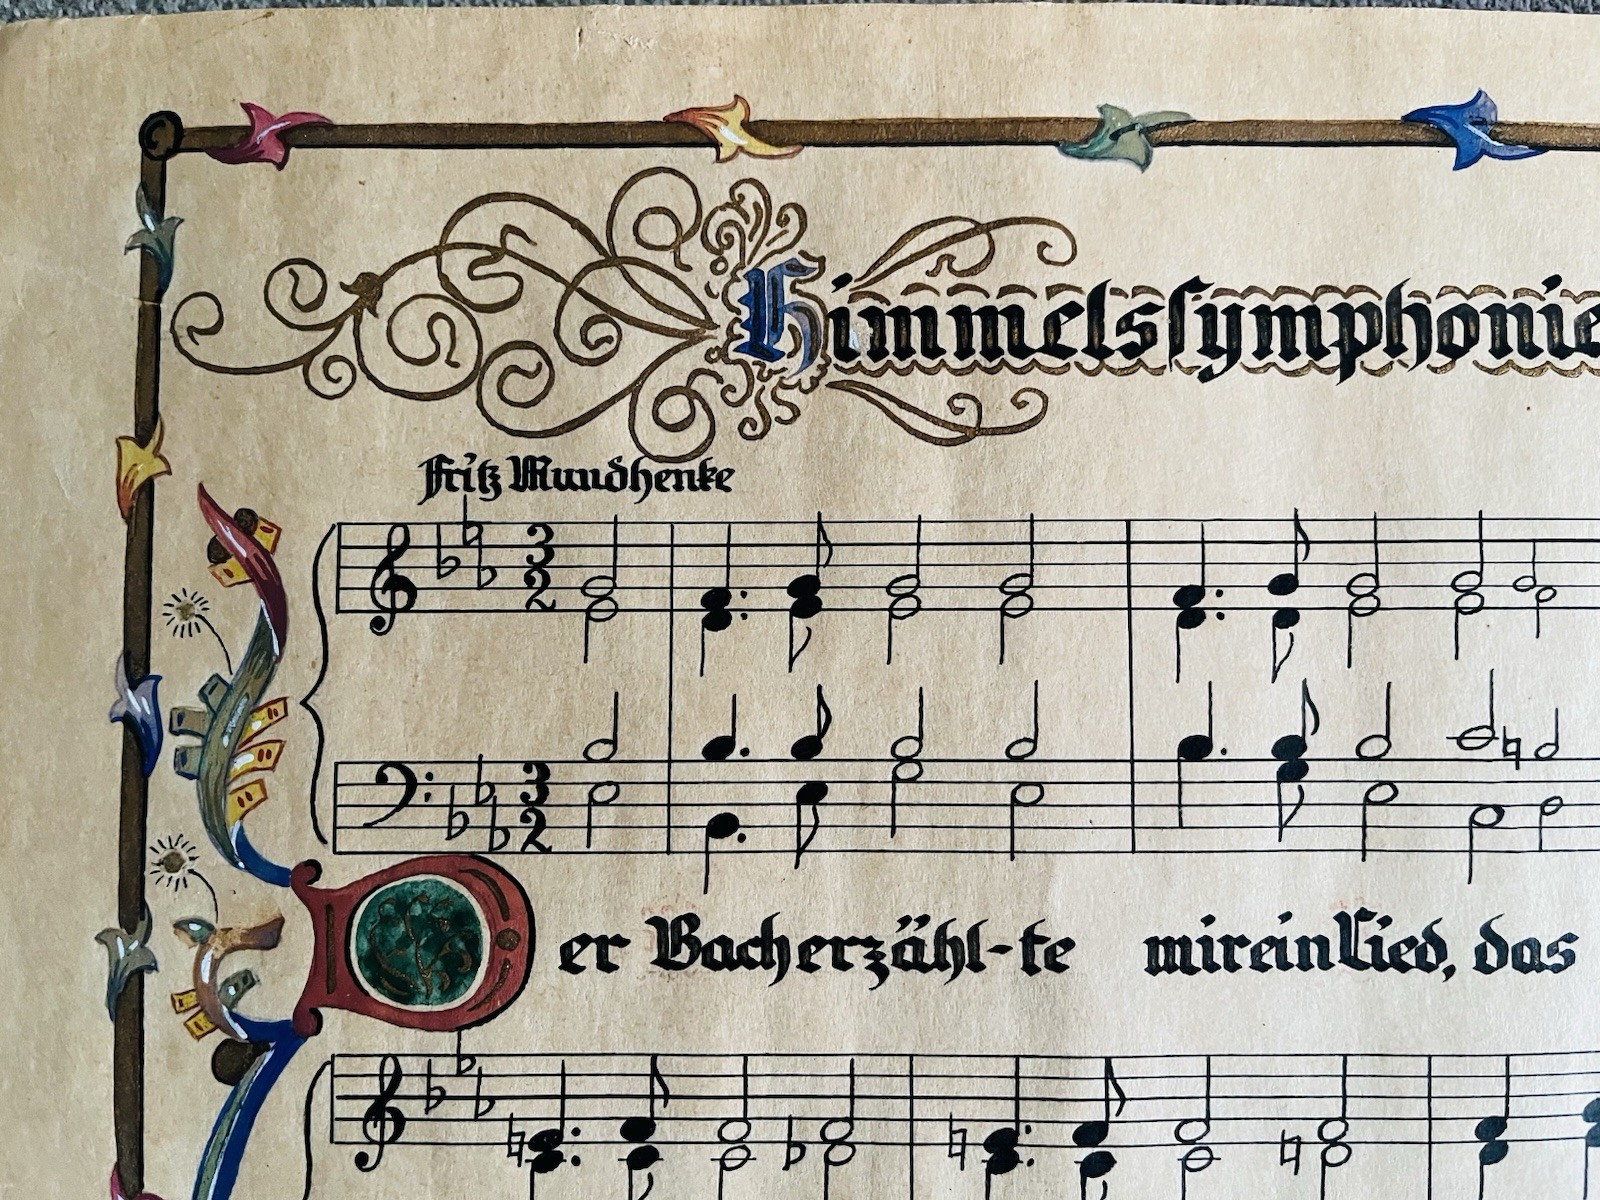 Himmelssymphonie
Fritz Mundhenke
3 2
3 2
Der Bach erzähl-te mir ein Lied, das